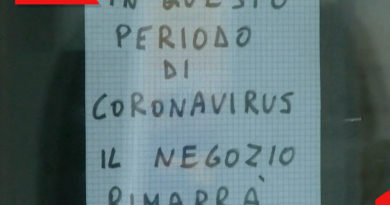 IN QUESTO
PERIODO
DI
CORONAVIRUS
IL NEGOZIO
RIMARRÀ